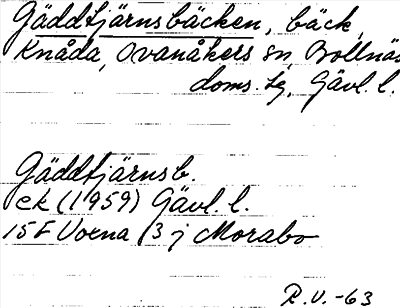 Gäddtjärnsbäcken, bäck,
Knåda, Ovanåkers sn, Bollnäs
doms. tg, Gävl. l.
Gäddtjärnsb.
ek (1959) Gävl. l.
15F Voxna /3 j Morabo
R.V. -63